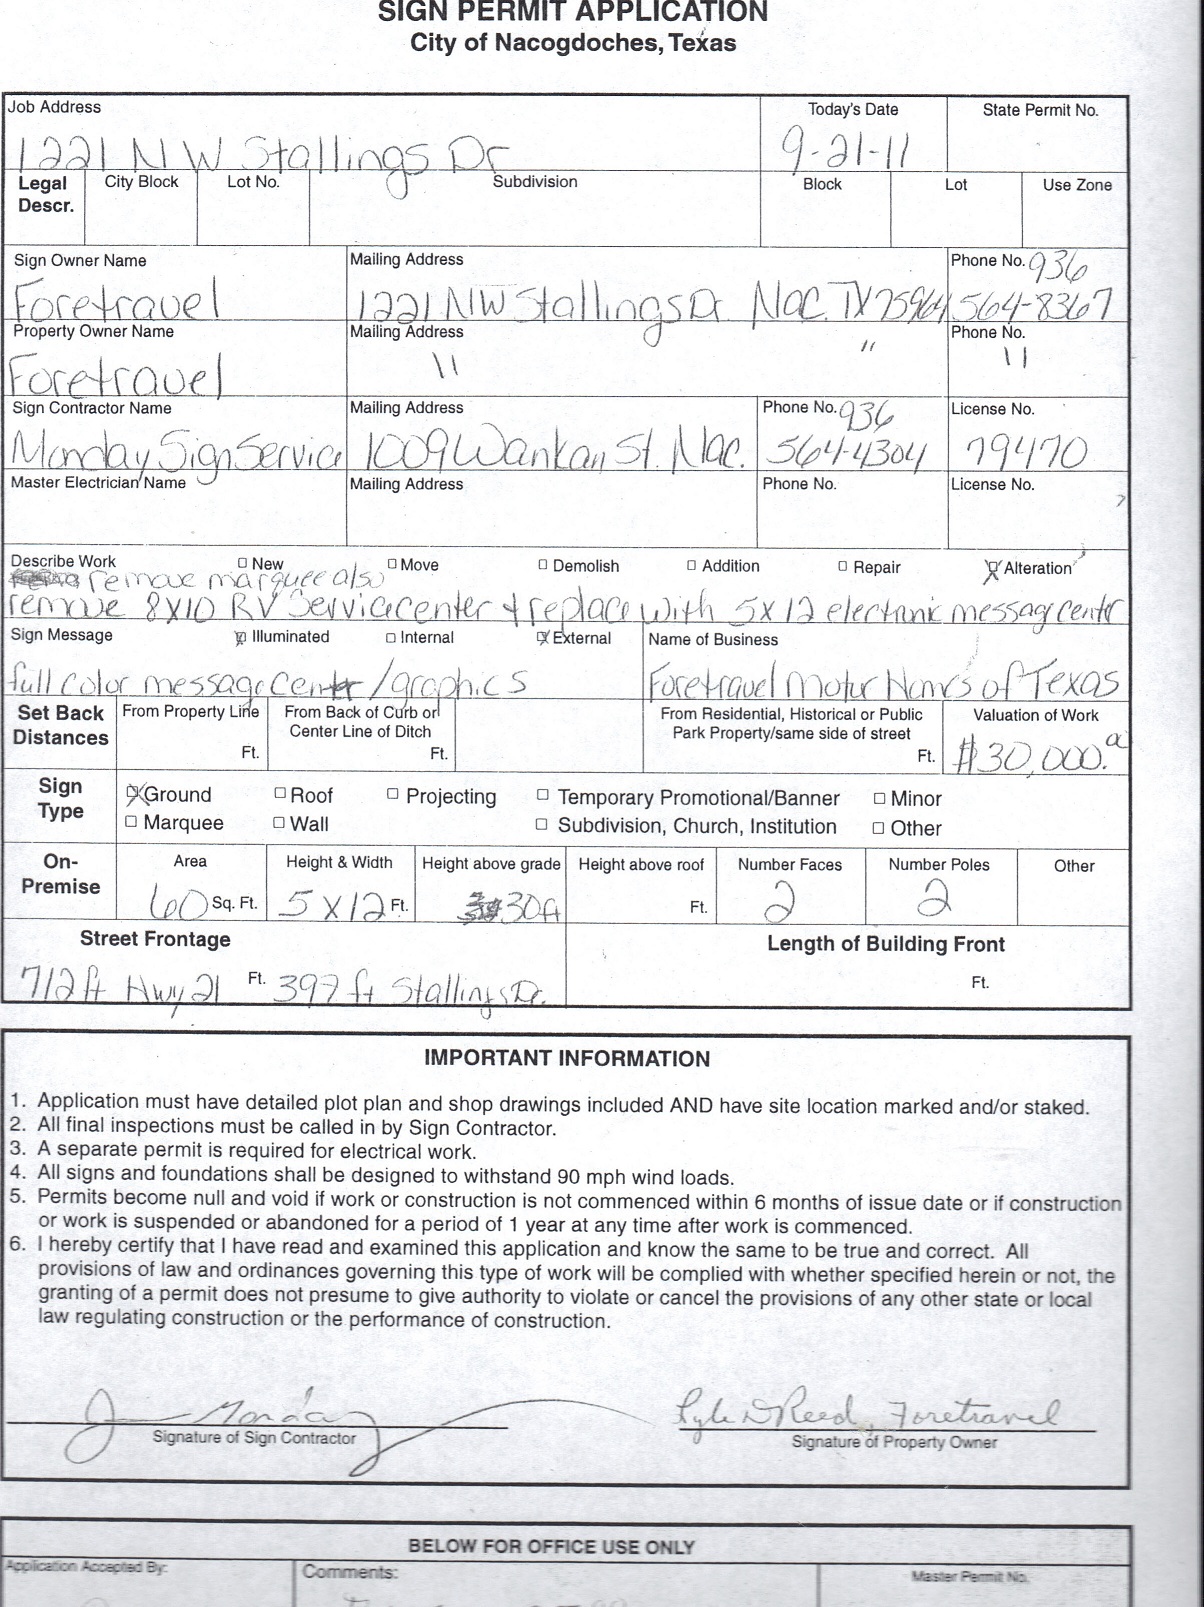 SIGN PERMIT APPLICATION
City of Nacogdoches, Texas
Job Address
Today's Date
State Permit No.
1221 NW Stallings Dr
9-21-11
Legal Descr.
City Block
Lot No.
Subdivision
Block
Lot
Use Zone
Sign Owner Name
Mailing Address
Phone No. 936
Foretravel
1221 NW Stallings Dr. Nac. TX 75964
564-8367
Property Owner Name
Mailing Address
Phone No.
Foretravel
" "
"
Sign Contractor Name
Mailing Address
Phone No. 936
License No.
Monday Sign Service
1009 Wankan St. Nac.
564-4304
79470
Master Electrician Name
Mailing Address
Phone No.
License No.
Describe Work
□ New
□ Move
□ Demolish
□ Addition
□ Repair
☒ Alteration
remove marquee also
remove 8X10 RV Service center + replace with 5X12 electronic message center
Sign Message
☒ Illuminated
□ Internal
☒ External
Name of Business
full color message center / graphics
Foretravel Motor Homes of Texas
Set Back Distances
From Property Line
Ft.
From Back of Curb or Center Line of Ditch
Ft.
From Residential, Historical or Public Park Property/same side of street
Ft.
Valuation of Work
$30,000.
Sign Type
☒ Ground
□ Roof
□ Projecting
□ Temporary Promotional/Banner
□ Minor
□ Marquee
□ Wall
□ Subdivision, Church, Institution
□ Other
On-Premise
Area
Height & Width
Height above grade
Height above roof
Number Faces
Number Poles
Other
60 Sq. Ft.
5 X 12 Ft.
30ft
Ft.
2
2
Street Frontage
Length of Building Front
712 ft Hwy 21 Ft. 397 ft Stallings Dr.
Ft.
IMPORTANT INFORMATION
1. Application must have detailed plot plan and shop drawings included AND have site location marked and/or staked.
2. All final inspections must be called in by Sign Contractor.
3. A separate permit is required for electrical work.
4. All signs and foundations shall be designed to withstand 90 mph wind loads.
5. Permits become null and void if work or construction is not commenced within 6 months of issue date or if construction
or work is suspended or abandoned for a period of 1 year at any time after work is commenced.
6. I hereby certify that I have read and examined this application and know the same to be true and correct. All
provisions of law and ordinances governing this type of work will be complied with whether specified herein or not, the
granting of a permit does not presume to give authority to violate or cancel the provisions of any other state or local
law regulating construction or the performance of construction.
Monday
Lyle D Reed, Foretravel
Signature of Sign Contractor
Signature of Property Owner
BELOW FOR OFFICE USE ONLY
Application Accepted By:
Comments:
Master Permit No.